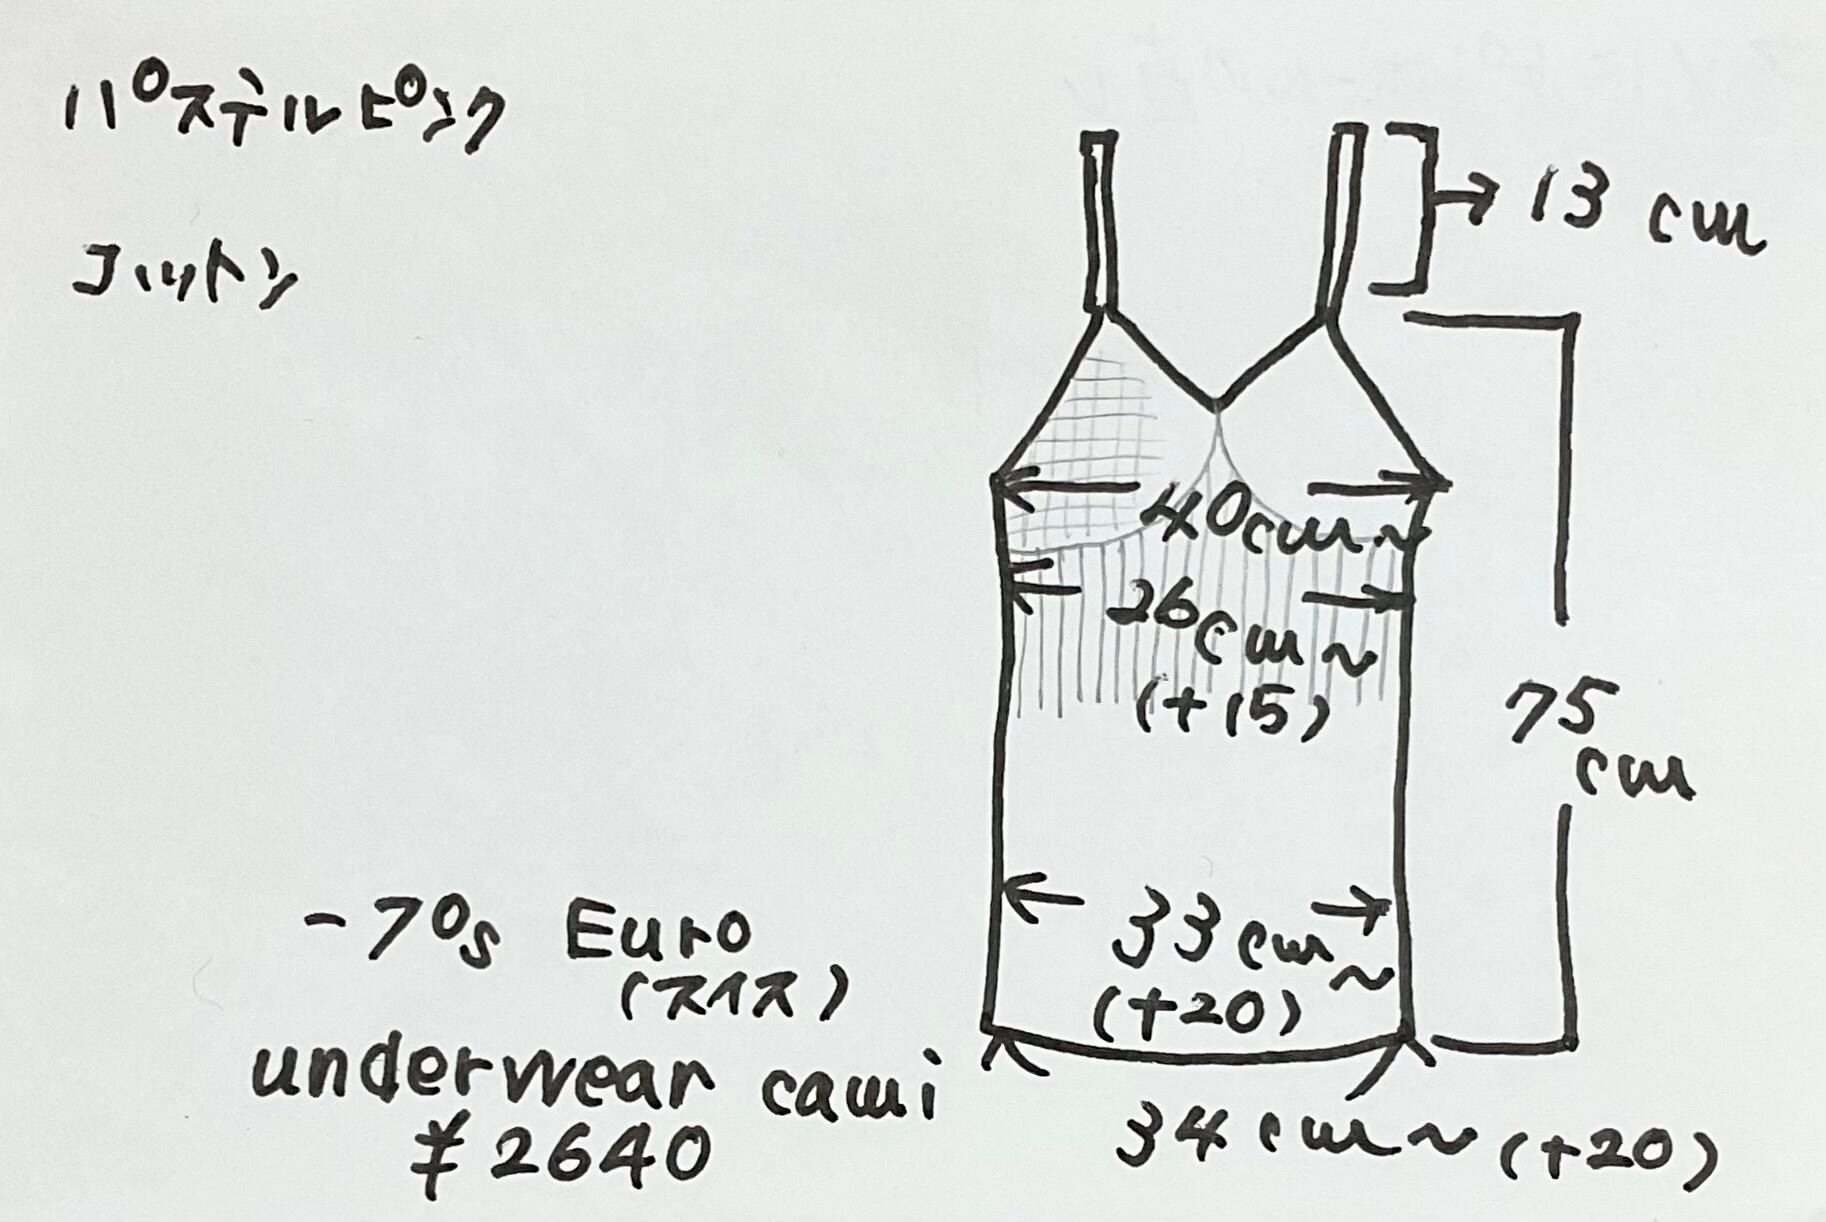 パステルピンク
コットン
13 cm
40cm~
26cm~
(+15)
75
cm
33cm~
(+20)
34cm~(+20)
-70s Euro
(スイス)
underwear cami
¥2640